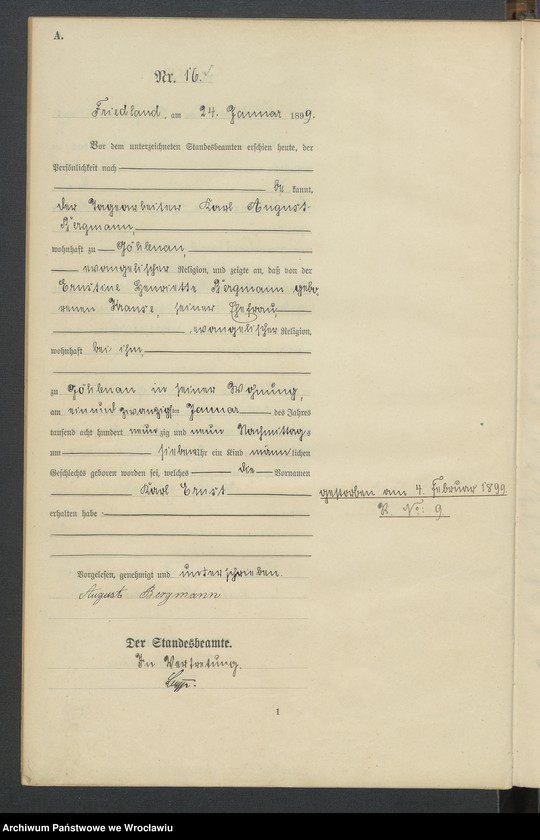 A.
Nr. 16.
Friedland, am 24. Januar 1899.
Vor dem unterzeichneten Standesbeamten erschien heute, der
Persönlichkeit nach
be kannt,
der Tagearbeiter Karl August
Bergmann,
wohnhaft zu Göhlenau,
evangelischer Religion, und zeigte an, daß von der
Ernstine Henriette Bergmann gebo-
renen Krause, seiner Ehefrau,
evangelischer Religion,
wohnhaft bei ihm,
zu Göhlenau in seiner Wohnung,
am ein und zwanzigsten Januar des Jahres
tausend acht hundert neunzig und neun Nachmittags
um sieben Uhr ein Kind männlichen
Geschlechts geboren worden sei, welches die Vornamen
Karl Ernst
erhalten habe.
gestorben am 4. Februar 1899
R. No: 9
Vorgelesen, genehmigt und unterschrieben.
August Bergmann
Der Standesbeamte.
In Vertretung.
1
Archiwum Państwowe we Wrocławiu